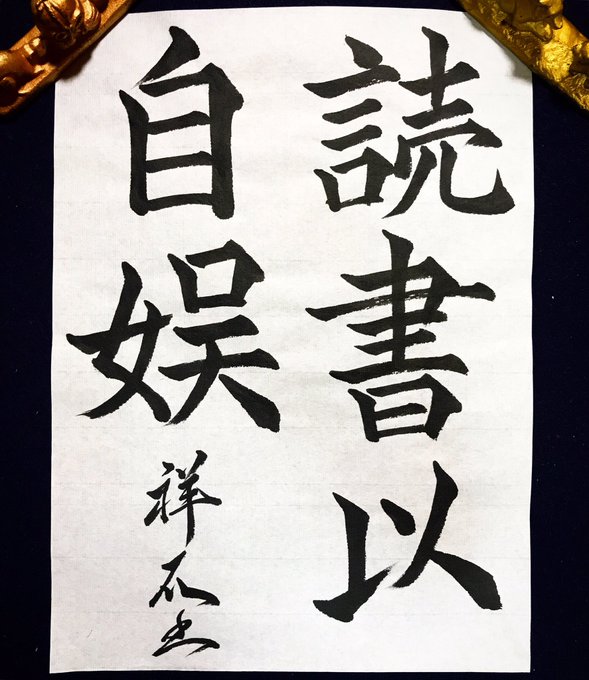 読書以
自娯
祥石書